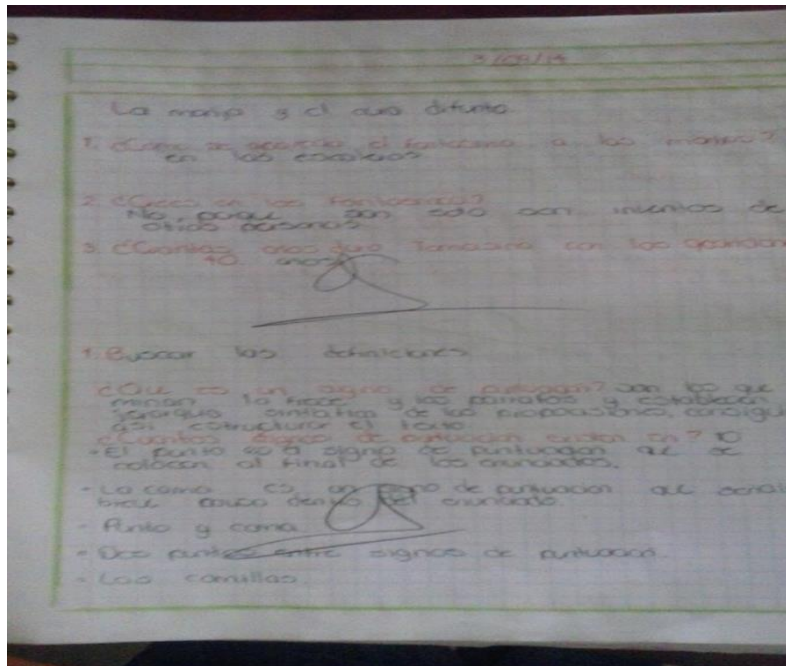 3/09/14
La monja y el cura difunto
1. ¿Como se aparecia el fantasma a las monjas?
en las escaleras
2 ¿Crees en los fantasmas?
No, porque son solo son inventos de
otras personas
3. ¿Cuantos años duro Tomasina con las
40 años
1. Buscar las definiciones
¿Que es un signo de puntuacion? son los que
la frase y los parrafos y establecen
jerarquia sintactica de las proposiciones,
asi estructurar el texto
¿Cuantos signos de puntuacion existen 10
- El punto es signo de puntuacion que se
colocan al final de los enunciados.
- La coma es un signo de puntuacion que
breve pausa dentro del enunciado.
- Punto y coma
- Dos puntos entre signos de puntuacion.
- Las comillas